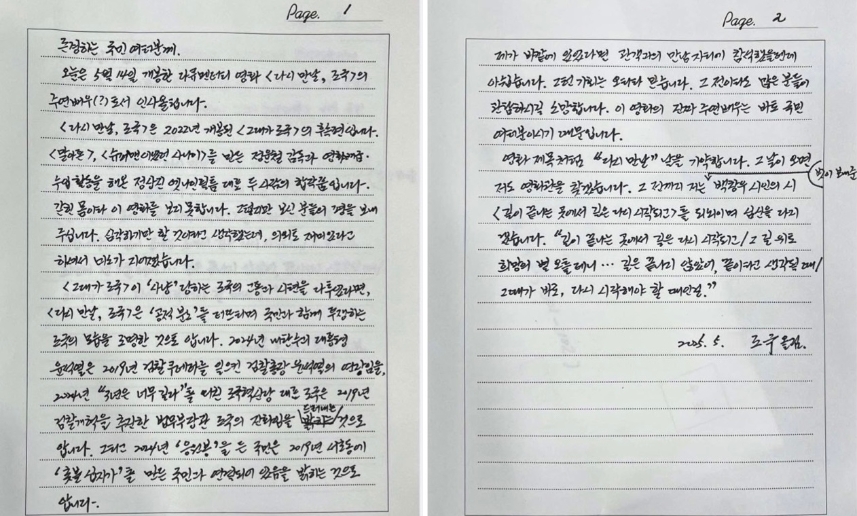 Page. 1
존경하는 국민 여러분께.
오늘은 5월 14일 개봉한 다큐멘터리 영화 <다시 만날, 조국>의
주연배우(?)로서 인사올립니다.
<다시 만날, 조국>은 2022년 개봉된 <그대가 조국>의 후속편입니다.
<말아톤>, <슈퍼맨이었던 사나이>를 만든 정윤철 감독과 영화제작·
수입 활동을 해온 정상진 엣나인필름 대표 두 사람의 합작품입니다.
갇힌 몸이라 이 영화를 보지 못합니다. 그렇지만 보신 분들이 평을 보내
주십니다. 심각하기만 할 것이라고 생각했는데, 의외로 재미있다고
하셔서 미소가 지어졌습니다.
<그대가 조국>이 '사냥' 당하는 조국의 고통과 시련을 다루었다면,
<다시 만날, 조국>은 '공적 분노'를 터뜨리며 국민과 함께 투쟁하는
조국의 모습을 조명한 것으로 압니다. 2024년 내란수괴 대통령
윤석열은 2019년 검찰쿠데타를 일으킨 검찰총장 윤석열의 연장임을,
2024년 "3년은 너무 길다"를 외친 조국혁신당 대표 조국은 2019년
검찰개혁을 추진한 법무부장관 조국의 진화임을 드러내는 것으로
압니다. 그리고 2024년 '응원봉'을 든 국민은 2019년 서초동에
'촛불 십자가'를 만든 국민과 연결되어 있음을 밝히는 것으로
압니다.
Page. 2
제가 바깥에 있었다면 관객과의 만남 자리에 참석했을텐데
아쉽습니다. 그런 기회는 오리라 믿습니다. 그 전이라도 많은 분들이
관람하시길 소망합니다. 이 영화의 진짜 주연배우는 바로 국민
여러분이시기 때문입니다.
영화 제목처럼 "다시 만날" 날을 기약합니다. 그 날이 오면
저도 영화관을 찾겠습니다. 그 전까지 저는 박노해 시인의 시
벗이 보내준
<길이 끝나는 곳에서 길은 다시 시작되고>를 되뇌이며 심신을 다지
겠습니다. "길이 끝나는 곳에서 길은 다시 시작되고/그 길 위로
희망의 별 오를테니 … 길은 끝나지 않았어, 끝이라고 생각될 때/
그때가 바로, 다시 시작해야 할 때인걸."
2025. 5. 조국 올림.